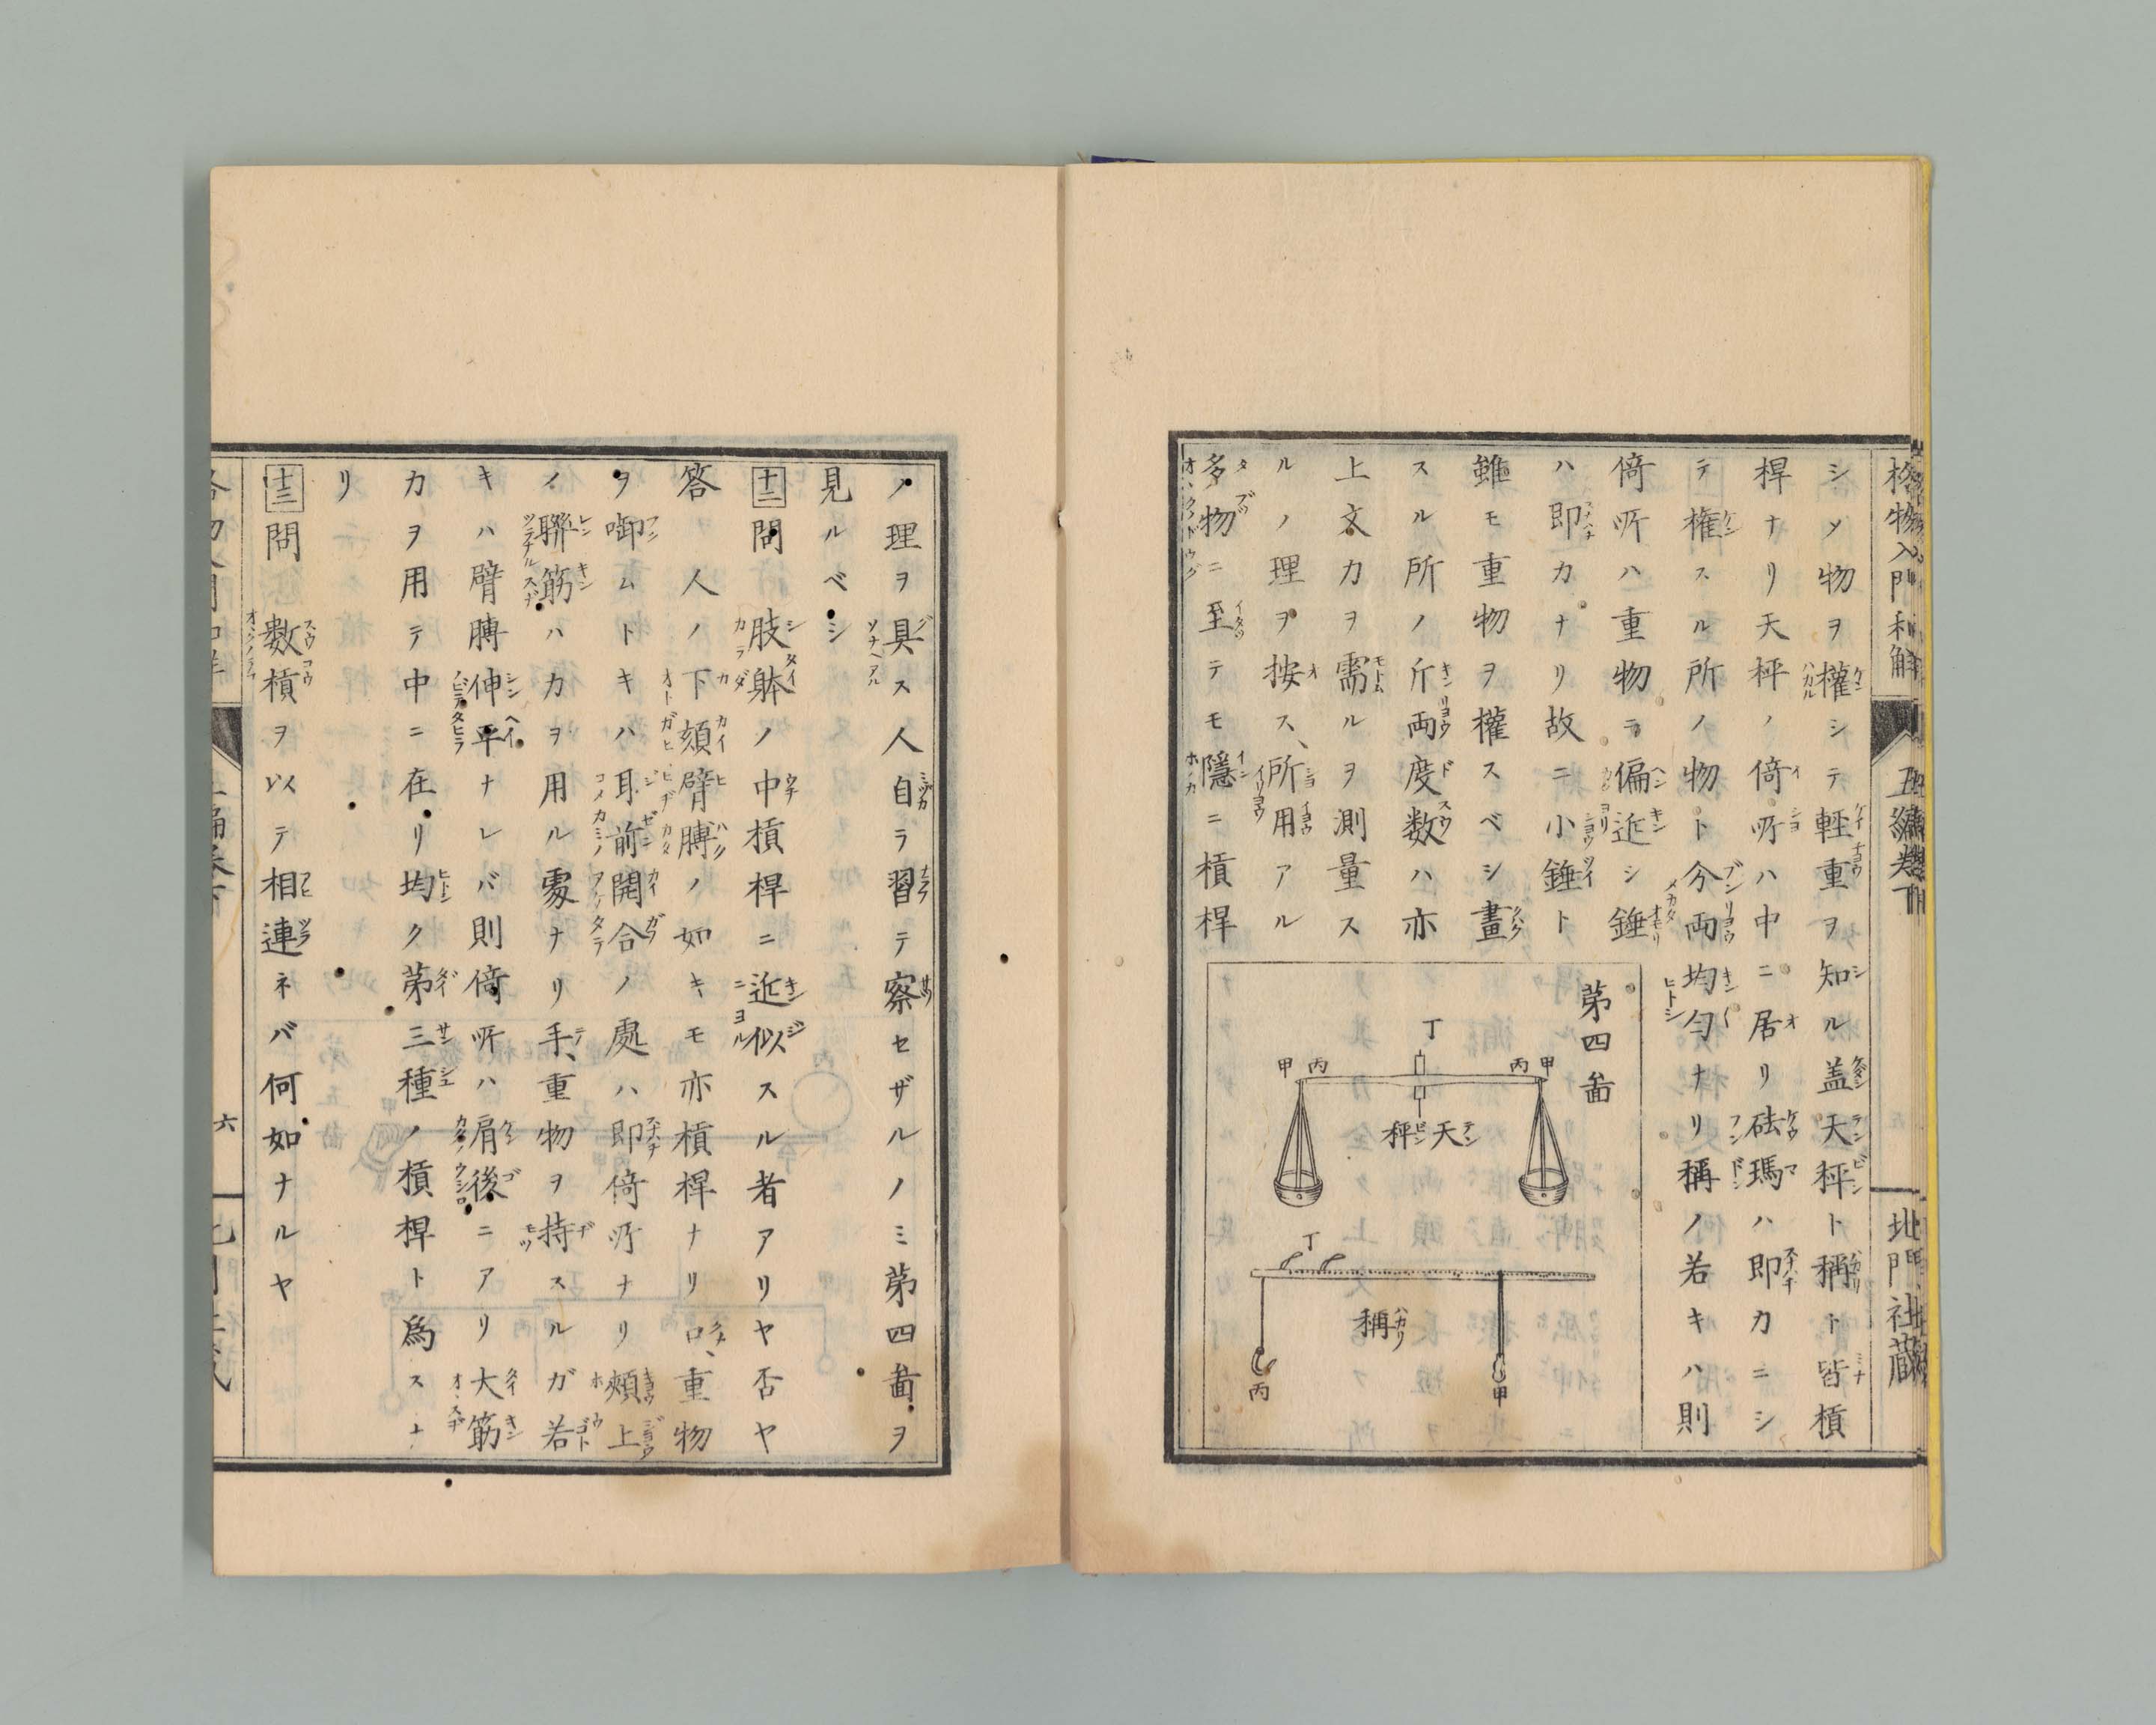 格物入門和解
五編巻下
北門社蔵
シメ物ヲ權シテ輕重ヲ知ル盖天秤ト稱ト皆槓
桿ナリ天秤ノ倚所ハ中ニ居リ砝瑪ハ即力ニシ
テ權スル所ノ物ト今両均勻ナリ稱ノ若キハ則
倚所ハ重物ニ偏近シ錘
ハ即力ナリ故ニ小錘ト
雖モ重物ヲ權スベシ畫
スル所ノ斤両度数ハ亦
上文力ヲ需ルヲ測量ス
ルノ理ヲ按ス、所用アル
多物ニ至テモ隱ニ槓桿
第四啚
丁
甲 丙
丙 甲
天秤
丁
稱
丙
甲
ノ理ヲ具ス人自ラ習テ察セザルノミ第四啚ヲ
見ルベシ
十二 問 肢躰ノ中槓桿ニ近似スル者アリヤ否ヤ
答 人ノ下頦臂膊ノ如キモ亦槓桿ナリ口、重物
ヲ啣ムトキハ耳前開合ノ處ハ即倚所ナリ頰上
ノ聯筋ハ力ヲ用ル處ナリ手、重物ヲ持スルガ若
キハ臂膊伸平ナレバ則倚所ハ肩後ニアリ大筋
力ヲ用テ中ニ在リ均ク第三種ノ槓桿ト爲スナ
リ
十三 問 數槓ヲ以テ相連ネバ何如ナルヤ
六